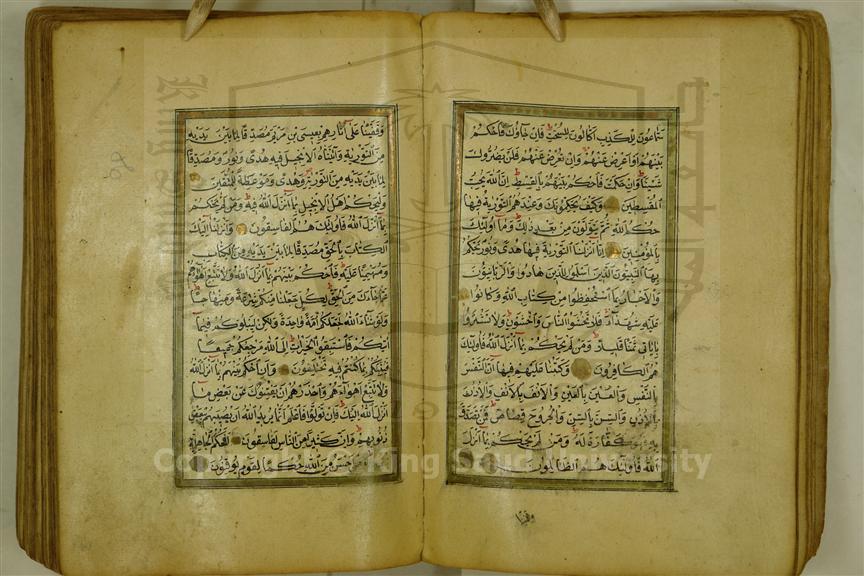 سماعون للكذب اكالون للسحت فان جاؤك فاحكم
بينهم او اعرض عنهم وان تعرض عنهم فلن يضروك
شيئا وان حكمت فاحكم بينهم بالقسط ان الله يحب
المقسطين وكيف يحكمونك وعندهم التورية فيها
حكم الله ثم يتولون من بعد ذلك وما اولئك
بالمؤمنين انا انزلنا التورية فيها هدى ونور يحكم
بها النبيون الذين اسلموا للذين هادوا والربانيون
والاحبار بما استحفظوا من كتاب الله وكانوا
عليه شهداء فلا تخشوا الناس واخشون ولا تشتروا
باياتي ثمنا قليلا ومن لم يحكم بما انزل الله فاولئك
هم الكافرون وكتبنا عليهم فيها ان النفس
بالنفس والعين بالعين والانف بالانف والاذن
بالاذن والسن بالسن والجروح قصاص فمن تصدق
به فهو كفارة له ومن لم يحكم بما انزل
الله فاولئك هم الظالمون
وقفينا
وقفينا على آثارهم بعيسى بن مريم مصدقا لما بين يديه
من التورية وآتيناه الانجيل فيه هدى ونور ومصدقا
لما بين يديه من التورية وهدى وموعظة للمتقين
وليحكم اهل الانجيل بما انزل الله فيه ومن لم يحكم
بما انزل الله فاولئك هم الفاسقون وانزلنا اليك
الكتاب بالحق مصدقا لما بين يديه من الكتاب
ومهيمنا عليه فاحكم بينهم بما انزل الله ولا تتبع اهواءهم
عما جاءك من الحق لكل جعلنا منكم شرعة ومنهاجا
ولو شاء الله لجعلكم امة واحدة ولكن ليبلوكم فيما
اتيكم فاستبقوا الخيرات الى الله مرجعكم جميعا
فينبئكم بما كنتم فيه تختلفون وان احكم بينهم بما انزل الله
ولا تتبع اهواءهم واحذرهم ان يفتنوك عن بعض ما
انزل الله اليك فان تولوا فاعلم انما يريد الله ان يصيبهم ببعض
ذنوبهم وان كثيرا من الناس لفاسقون افحكم الجاهلية
احسن من الله حكما لقوم يوقنون
Copyright © King Saud University